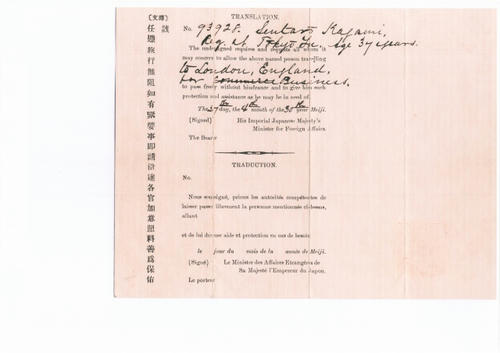 (譯文)
該
任便旅行無阻如有緊要事即請沿途各官加意照料善爲保佑
TRANSLATION.
No. 93928. Sentaro Kagami,
Age 37 years.
The undersigned requires and requests all whom it
may concern to allow the above named person travelling
to London, England,
for Commerce Business.
to pass freely without hindrance and to give him such
protection and assistance as he may be in need of.
The 27th day, the 4th month of the 38th year Meiji.
(Signed) His Imperial Japanese Majesty's
Minister for Foreign Affairs
The Bearer
TRADUCTION.
No.
Nous soussigné, prions les autorités compétentes de
laisser passer librement la personne mentionnée ci-dessus,
allant
et de lui donner aide et protection en cas de besoin
le jour du mois de la année de Meiji.
(Signé) Le Ministre des Affaires Etrangères de
Sa Majesté l'Empereur du Japon.
Le porteur